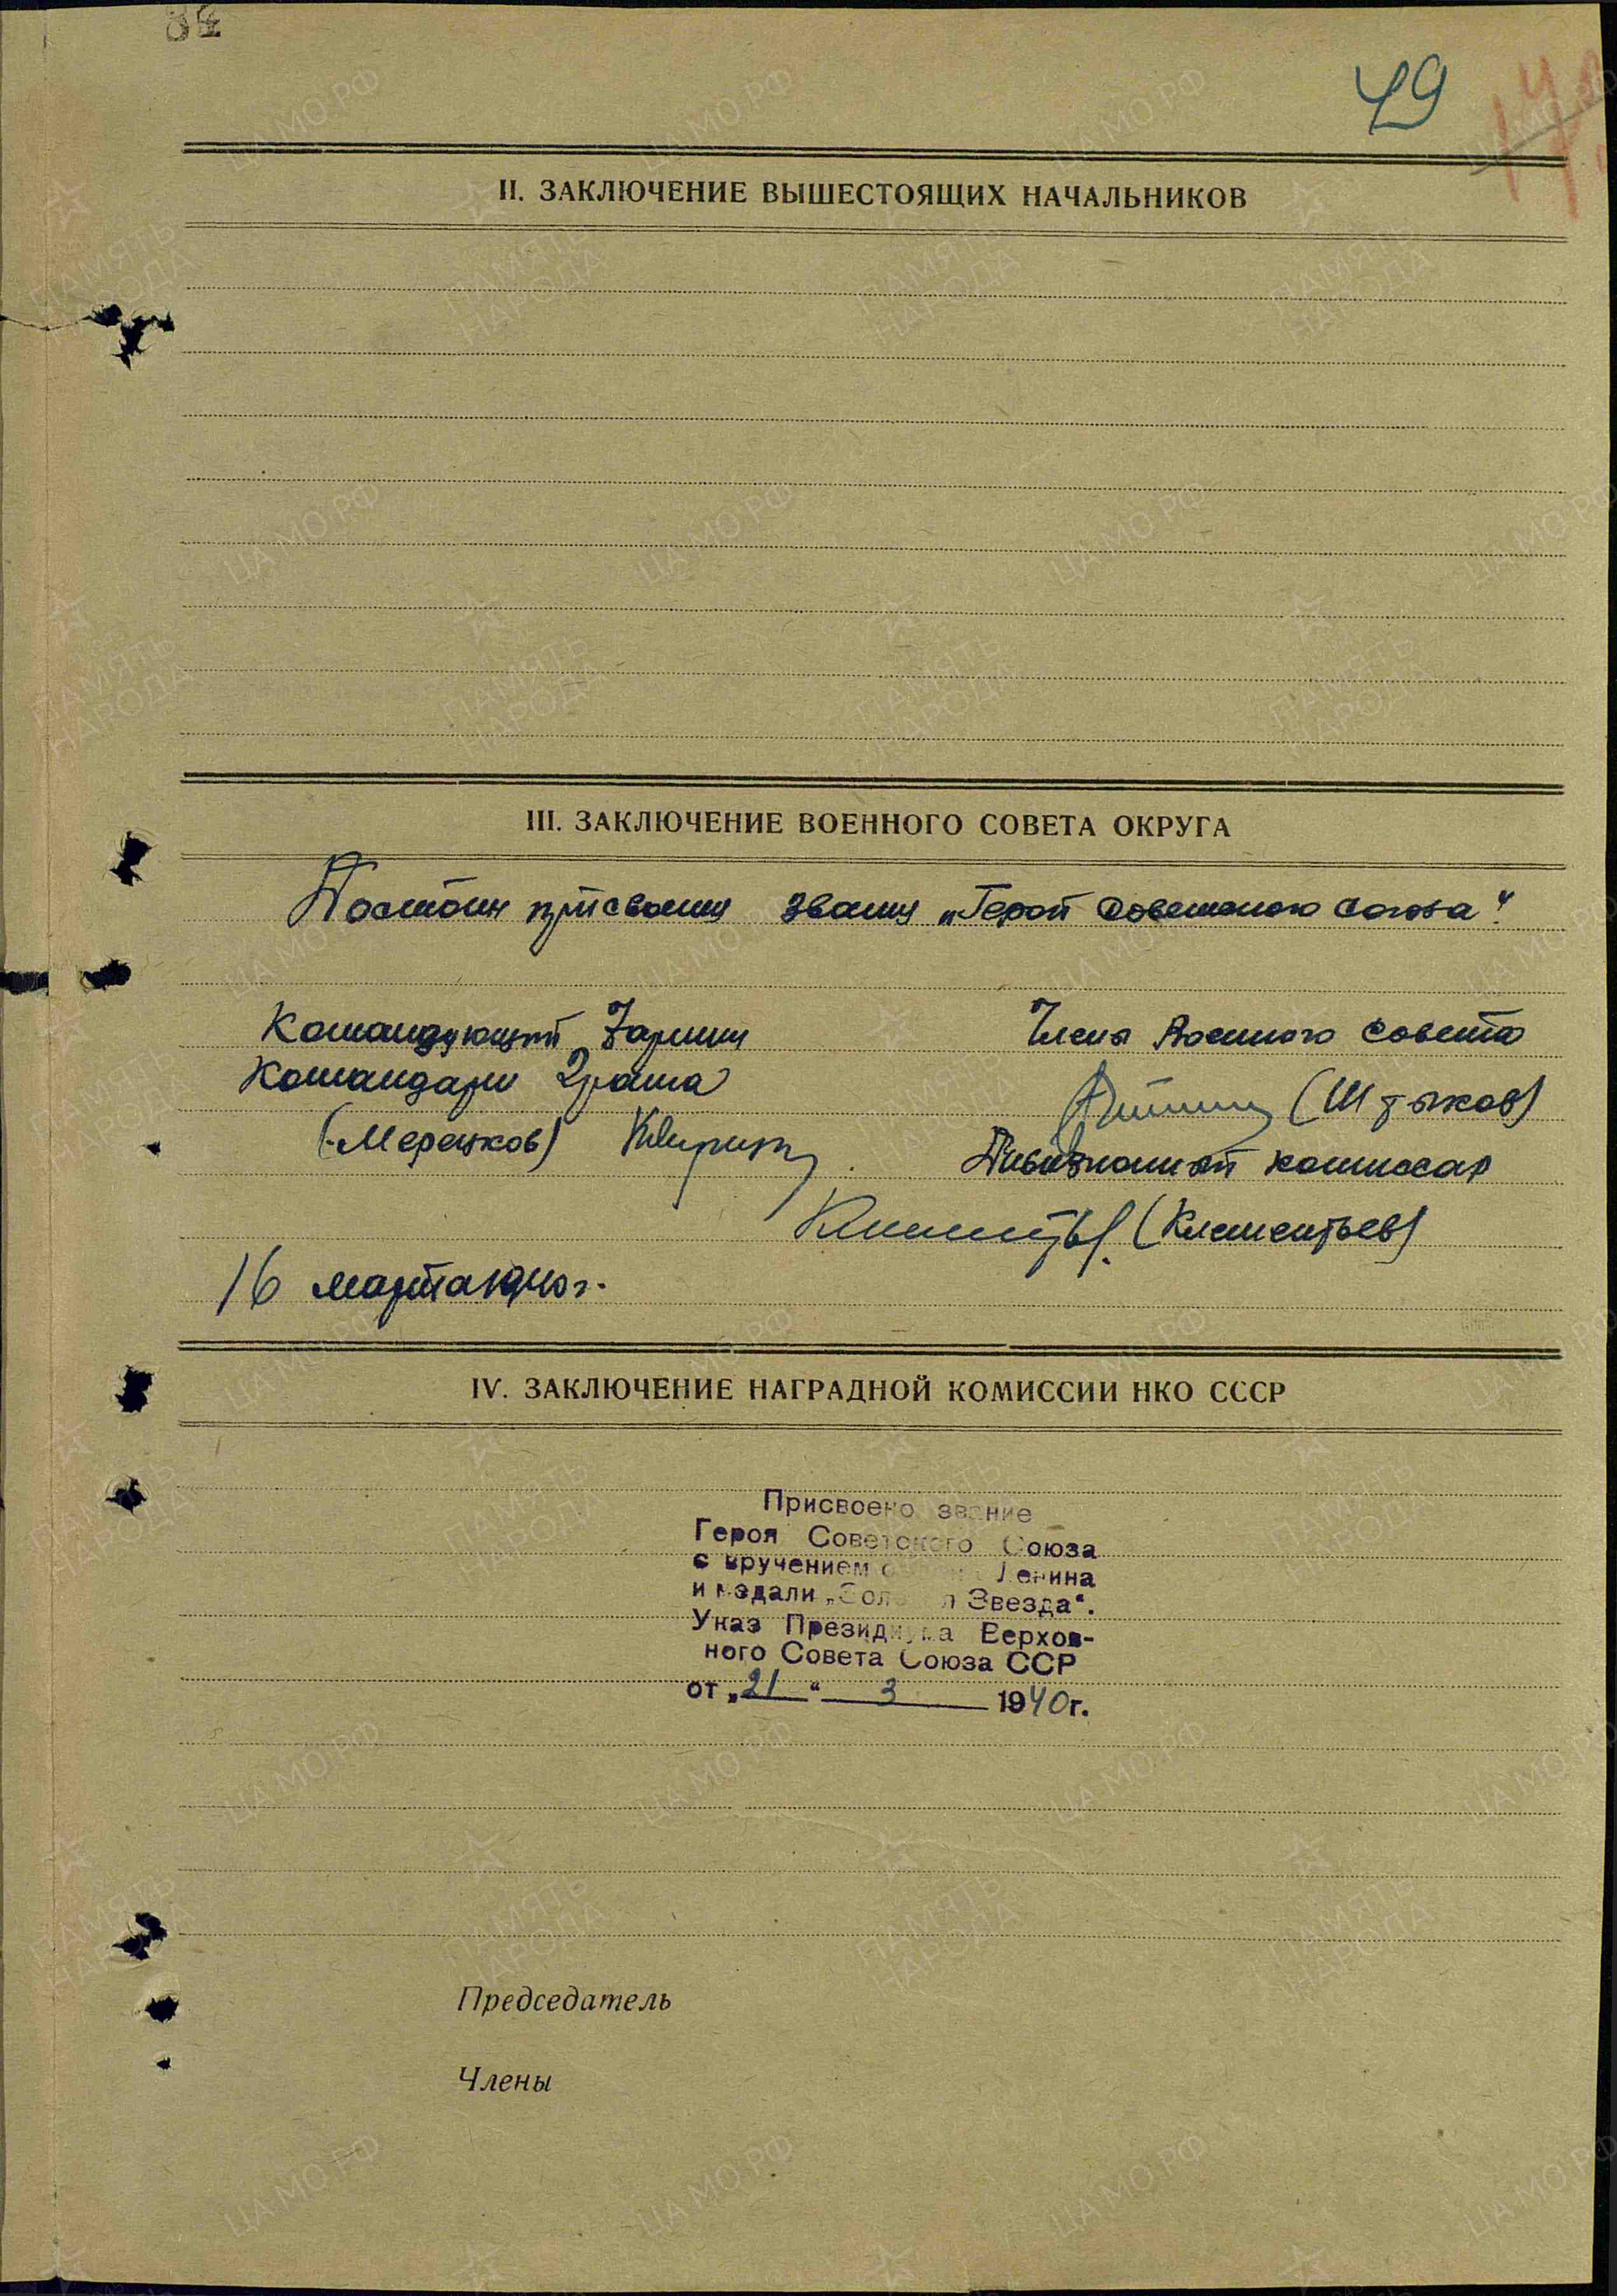 49
II. ЗАКЛЮЧЕНИЕ ВЫШЕСТОЯЩИХ НАЧАЛЬНИКОВ
III. ЗАКЛЮЧЕНИЕ ВОЕННОГО СОВЕТА ОКРУГА
Достоин присвоения звания „Герой Советского Союза“.
Командующий 7 армии
Члены Военного Совета
Командарм 2 ранга
(Штыков)
(Мерецков)
Дивизионный комиссар
(Клементьев)
16 марта 1940 г.
IV. ЗАКЛЮЧЕНИЕ НАГРАДНОЙ КОМИССИИ НКО СССР
Присвоено звание
Героя Советского Союза
с вручением ордена Ленина
и медали „Золотая Звезда“.
Указ Президиума Верхов-
ного Совета Союза ССР
от „21“ 3 1940 г.
Председатель
Члены
ЦА МО РФ
ПАМЯТЬ НАРОДА